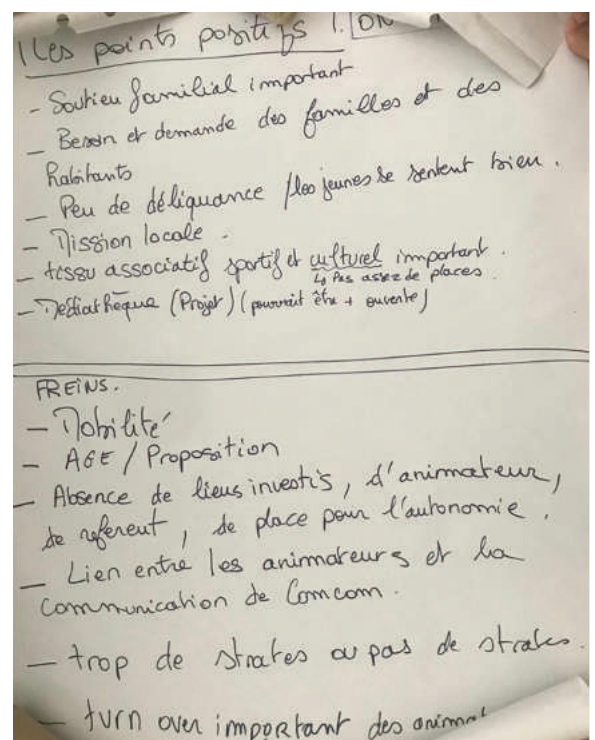 Les points positifs
- Soutien familial important
- Besoin et demande des familles et des
habitants
- Peu de déliquance / les jeunes se sentent bien.
- Mission locale.
- tissu associatif sportif et culturel important.
↳ Pas assez de places.
- Médiathèque (Projet) (pourrait être + ouverte)
FREINS.
- Mobilité
- AGE / Proposition
- Absence de lieus investis, d'animateur,
de referent, de place pour l'autonomie.
- Lien entre les animateurs et la
communication de Comcom.
- trop de strates ou pas de strates.
- turn over important des animat